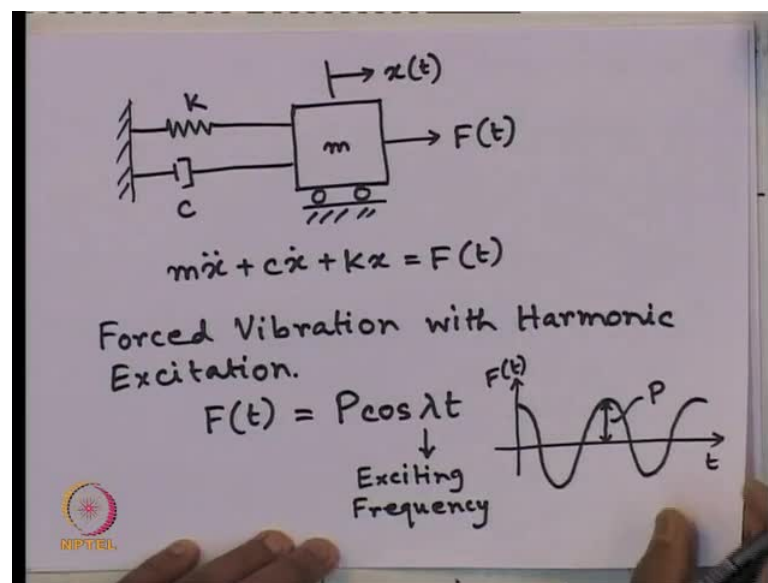 x(t)
K
m
F(t)
C
mẍ + cẋ + Kx = F(t)
Forced Vibration with Harmonic
Excitation.
F(t)
F(t) = P cos λt
P
t
Exciting
Frequency
NPTEL